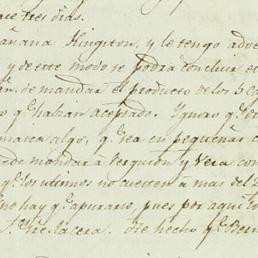 ace tres dias.
añana Kingston, y le tengo adve
y de este modo se podrá concluir el
de mandar el producto de los 5 ca
o qᵉ habian aceptado. Ignoro qᵉ
marca algo, qᵉ sea en pequeñas c
ede mandar á Berguido y Vera con
qᵉ los ultimos no cuesten á mas del
ne hay qᵉ apurarse, pues por aqui lo
he hecho qᵉ Ber